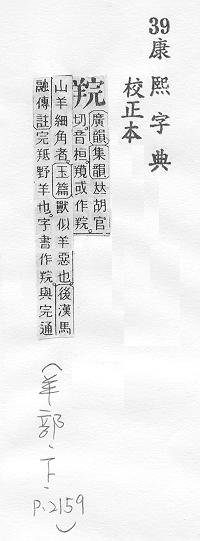 39康熙字典
校正本
羦
廣韻集韻𠀤胡官
切音桓羱或作羦
山羊細角者玉篇獸似羊惡也後漢馬
融傳註完羝野羊也字書作羦與完通
(羊部·下·
P.2159)